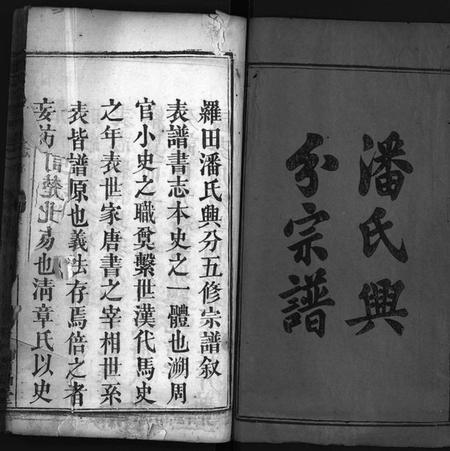 潘氏興
分宗譜
羅田潘氏興分五修宗譜敘
表譜書志本史之一體也溯周
官小史之職奠繫世漢代馬史
之年表世家唐書之宰相世系
表皆譜原也義法存焉倍之者
妄
易也清章氏以史